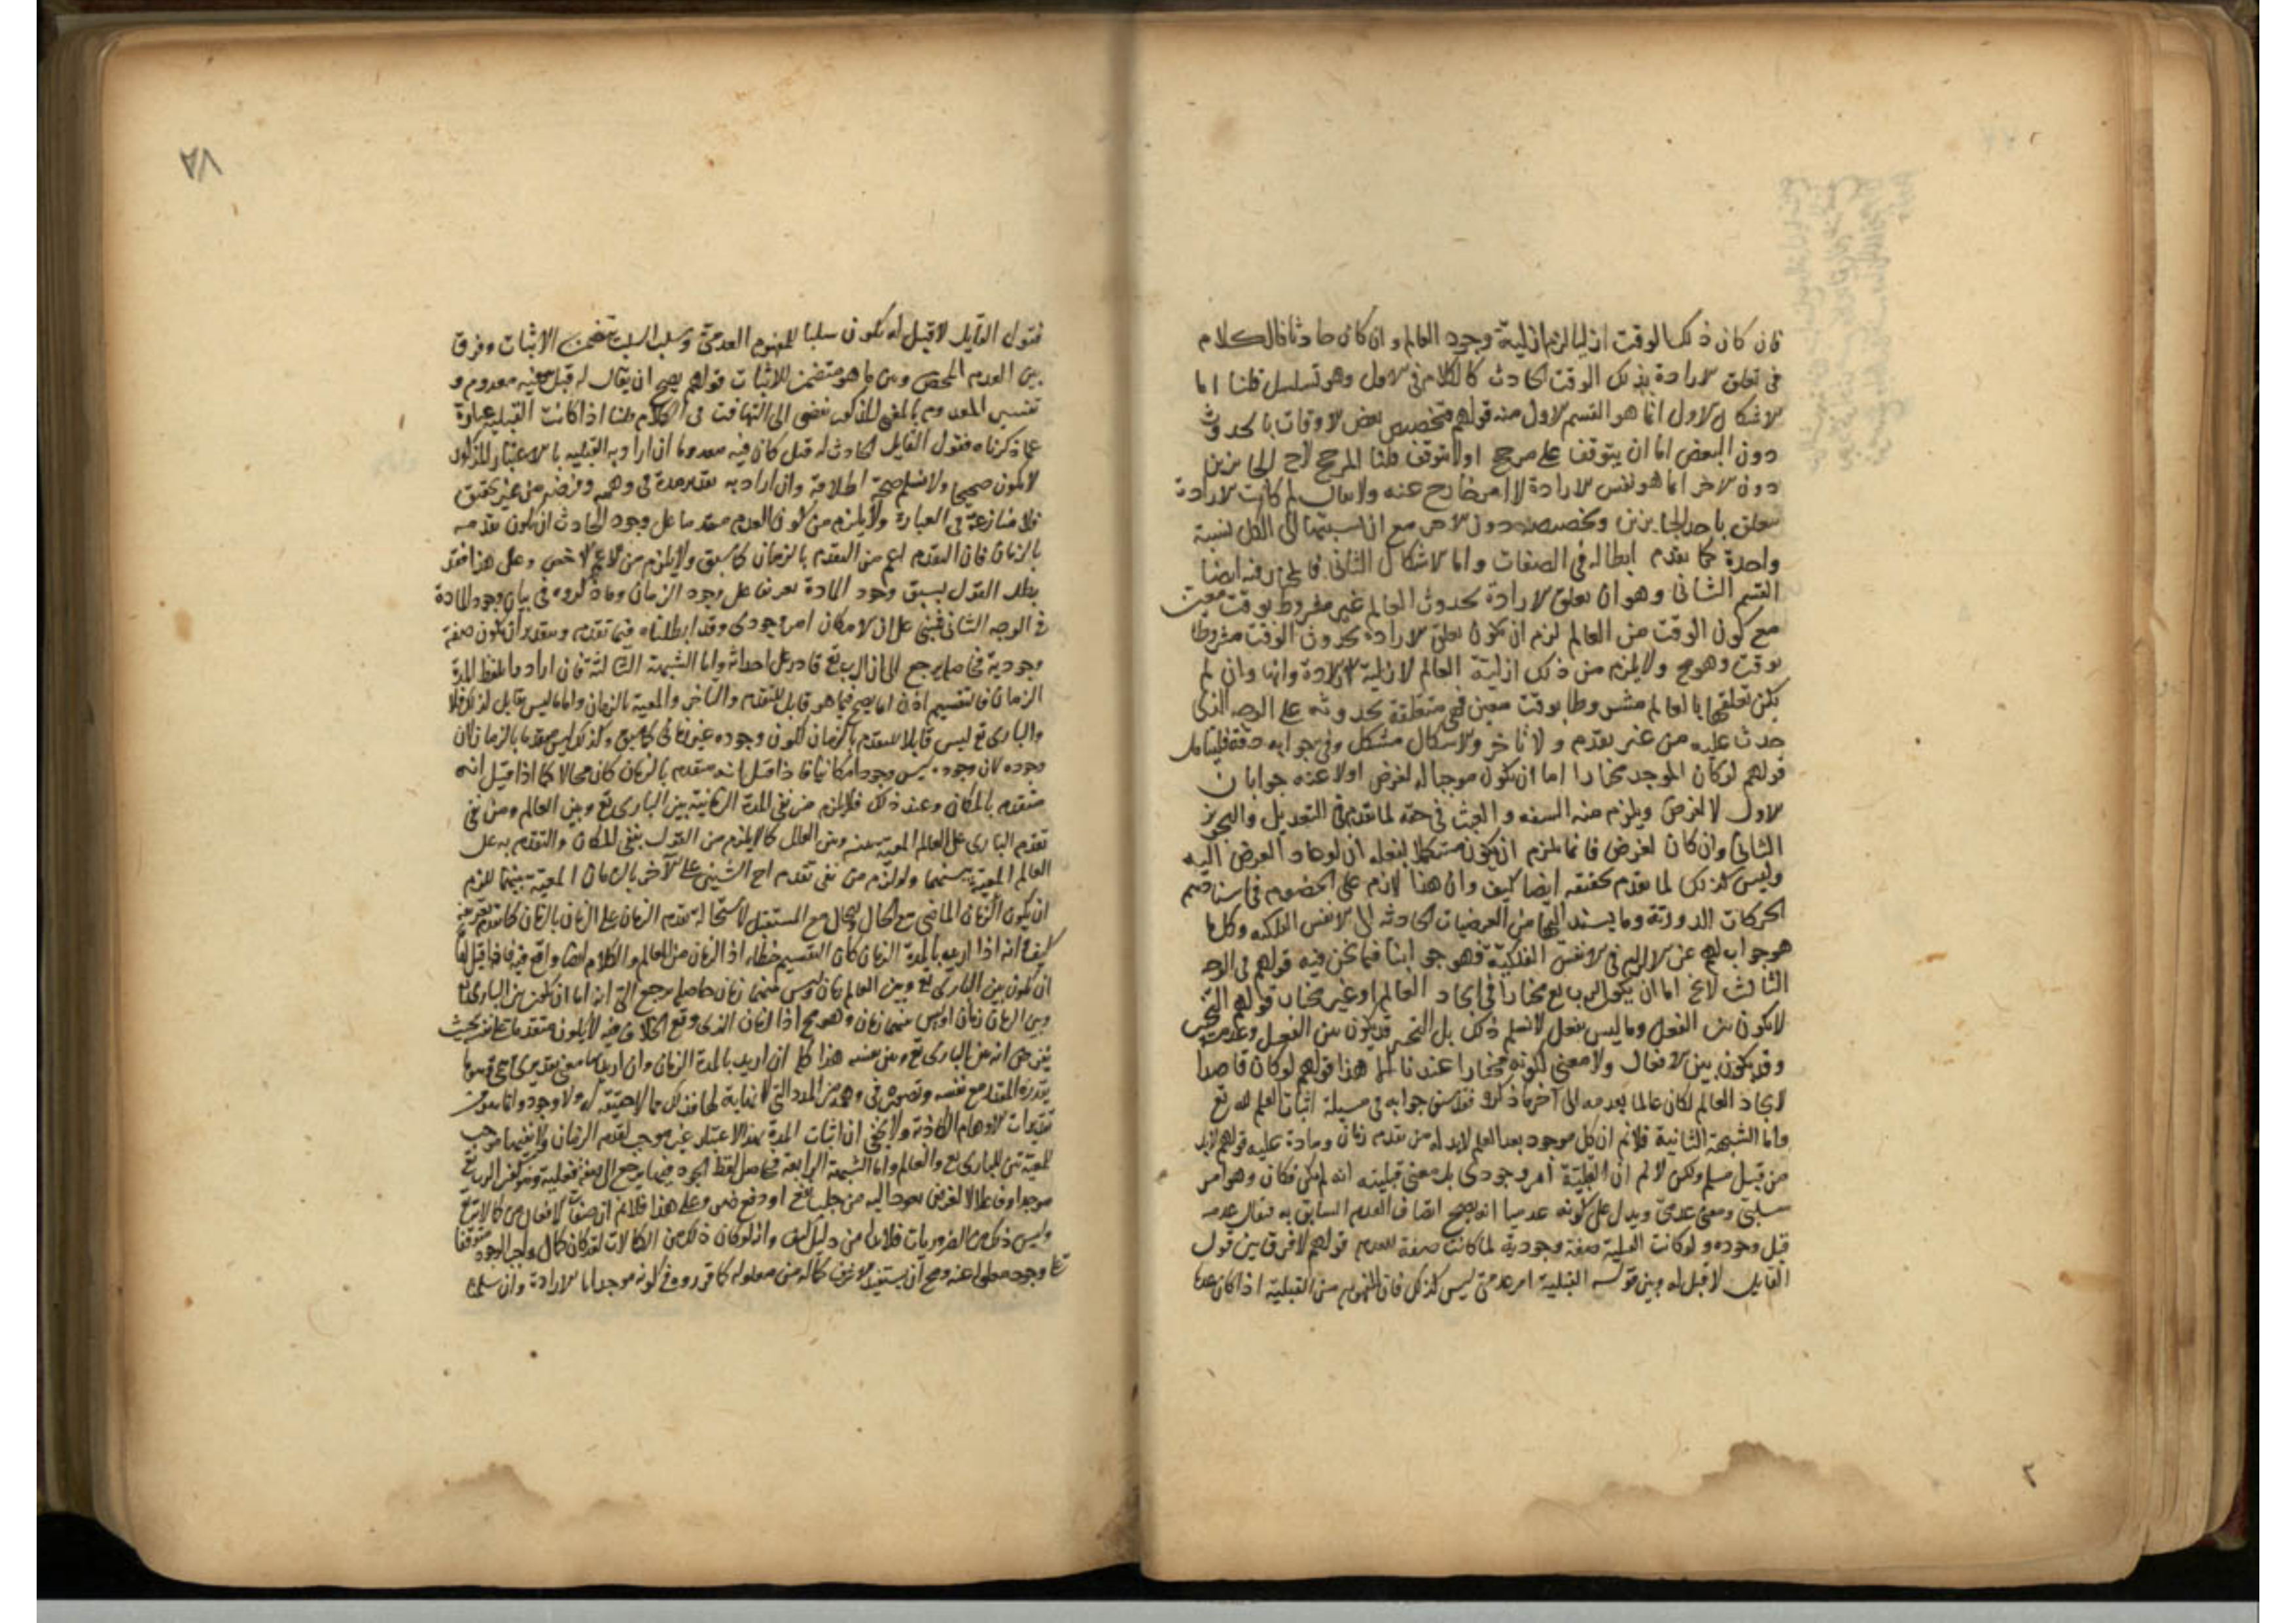 فان كان ذلك الوقت ازليا لزم ازلية وجود العالم وان كان حادثا فالكلام
فى تعلق الارادة بذلك الوقت الحادث كالكلام فى الاول وهو تسلسل قلنا اما
الاشكال الاول انما هو القسم الاول منه قولهم تخصيص بعض الاوقات بالحدوث
دون البعض اما ان يتوقف على مرجح اولا يتوقف قلنا المرجح لاحد الجايزين
دون الاخر انما هو نفس الارادة لا امر خارج عنه ولا يقال لم كانت الارادة
تتعلق باحد الجايزين وتخصيصه دون الاخر مع ان نسبتها الى الكل نسبة
واحدة كما تقدم ابطاله فى الصفات واما الاشكال الثانى فالمختار فيه ايضا
القسم الثانى وهو ان تعلق الارادة بحدوث العالم غير مشروط بوقت معين
مع كون الوقت من العالم لزم ان يكون تعلق الارادة بحدوث الوقت مشروطا
بوقت وهو مح ولا يلزم من ذلك ازلية العالم لازلية الارادة وانها وان لم
يكن تعلقها بالعالم مشروطا بوقت معين فهى متعلقة بحدوثه على الوجه الذى
حدث عليه من غير تقدم ولا تاخر والاشكال مشكل وفى جوابه دقة فليتامل
قولهم لو كان الموجد مختارا اما ان يكون موجبا له لغرض اولا عنه جوابان
الاول لا لغرض ويلزم منه السفه والعبث فى حقه لما تقدم فى التعديل والتجوير
الثانى وان كان لغرض فانما يلزم ان يكون مستكملا بفعله ان لو عاد الغرض اليه
وليس كذلك لما تقدم تحقيقه ايضا كيف وان هذا لازم على الخصوم فى اسنادهم
الحركات الدورية وما يستند اليها من العرضيات الحادثة الى الانفس الفلكية وكل ما
هو جواب لهم عن الالزام فى الانفس الفلكية فهو جوابنا فيما نحن فيه قولهم فى الوجه
الثالث لا يخ اما ان يكون الرب تع مختارا فى ايجاد العالم او غير مختار قولهم التخير
لا يكون بين الفعل وما ليس بفعل لا نسلم ذلك بل التخير قد يكون بين الفعل وعدمه
وقد يكون بين الافعال ولا معنى لكونه مختارا عندنا الا هذا قولهم لو كان قاصدا
لايجاد العالم لكان عالما بعدمه الى آخر ما ذكروه فقد سبق جوابه فى مسيلة اثبات العلم لله تع
واما الشبهة الثانية فلا نم ان كل موجود بعد العدم لابد له من تقدم زمان ومادة عليه قولهم لابد
من قبل مسلم ولكن لا نم ان القبلية امر وجودى بل معنى قبليته انه لم يكن فكان وهو امر
سلبى ومعنى عدمى ويدل على كونه عدميا انه يصح اتصاف العدم السابق به فيقال عدمه
قبل وجوده ولو كانت القبلية صفة وجودية لما كانت صفة للعدم قولهم لا فرق بين قول
القايل لا قبل له وبين قوله القبلية امر عدمى ليس كذلك فان المفهوم من القبلية اذا كان عدما
٧٨
فقول القايل لا قبل له يكون سلبا للمفهوم العدمى وسلب السلب يتضمن الاثبات وفرق
بين العدم المحض وبين ما هو متضمن للاثبات قولهم يصح ان يقال له قبل معيه معدوم و
تفسير المعدوم بالمعنى المذكور يفضى الى التهافت فى الكلام قلنا اذا كانت القبلية عبارة
عما ذكرناه فقول القايل الحادث له قبل كان فيه معدوما ان اراد به القبلية بالاعتبار المذكور
لا يكون صحيحا ولا نسلم صحة اطلاقه وان اراد به تقدير مدة فى وهمه وفرضه من غير تحقيق
فلا منازعة فى العبارة ولا يلزم من كون العدم متقدما على وجود الحادث ان يكون تقدمه
بالزمان فان التقدم اعم من التقدم بالزمان كما سبق ولا يلزم من الاعم الاخص وعلى هذا فقد
بطل القول بسبق وجود المادة تفريعا على وجود الزمان وما ذكروه فى بيان وجود المادة
فى الوجه الثانى فمبنى على ان الامكان امر وجودى وقد ابطلناه فيما تقدم وبتقدير ان يكون صفة
وجودية فحاصله يرجع الى ان الرب تع قادر على احداثه واما الشبهة الثالثة فان ارادوا بلفظ المدة
الزمان فالتقسيم اذن انما يصح فيما هو قابل للتقدم والتاخر والمعية بالزمان واما ما ليس بقابل لذلك فلا
والبارى تع ليس قابلا للتقدم بالزمان لكون وجوده غير زمانى كما سبق وكذلك ليس متقدما بالزمان لان
وجوده لان وجوده ليس وجودا مكانيا فاذا قيل انه متقدم بالزمان كان محالا كما اذا قيل انه
متقدم بالمكان وعند ذلك فلا يلزم من نفى المدة الزمانية بين البارى تع وبين العالم ومن نفى
تقدم البارى على العالم المعية بينه وبين العالم كما لا يلزم من القول بنفى المكان والتقدم به على
العالم المعية بينهما ولو لزم من نفى تقدم احد الشيئين على الآخر بالزمان المعية بينهما للزم
ان يكون الزمان الماضى مع الحال والحال مع المستقبل لاستحالة تقدم الزمان على الزمان بالزمان كما تقدم تعريفه
كيف وانه اذا اريد بالمدة الزمان كان التقسيم خطأ اذ الزمان من العالم والكلام ايضا واقع فيه فاذا قيل اما
ان يكون بين البارى تع وبين العالم زمان او ليس بينهما زمان حاصله يرجع الى انه اما ان يكون بين البارى تع
وبين الزمان زمان او ليس بينهما زمان وهو مح اذا الزمان الذى وقع الخلاف فيه لا يكون متقدما على نفسه بحيث
يفرض انه بين البارى تع وبين نفسه هذا كله ان اريد بالمدة الزمان وان اريد بها معنى تقديرى
يقدره المقدر مع نفسه وتصوره فى وهمه من المدد التى لا نهاية لها فذلك مما لا حقيقة له ولا وجود وانما هو من
تقديرات الاوهام الكاذبة ولا يخفى ان اثبات المدة بهذا الاعتبار غير موجب لتقدم الزمان ولا نفيها موجب
للمعية بين البارى تع والعالم واما الشبهة الرابعة فحاصل لفظ الجود فيها يرجع الى صفة فعلية وهو كون الرب تع
موجدا وفاعلا لا لغرض يعود اليه من جلب نفع او دفع ضر وعلى هذا فلا نم ان صفات الافعال من كمالاته تع
وليس ذلك من الضروريات فلا بد له من دليل كيف وانه لو كان ذلك من الكمالات لقد كان كمال واجب الوجود متوقفا
على وجود معلوله عنه ومح ان يستفيد الاشرف كماله من معلوله كما قرروه فى كونه موجدا بالارادة وان سلمنا